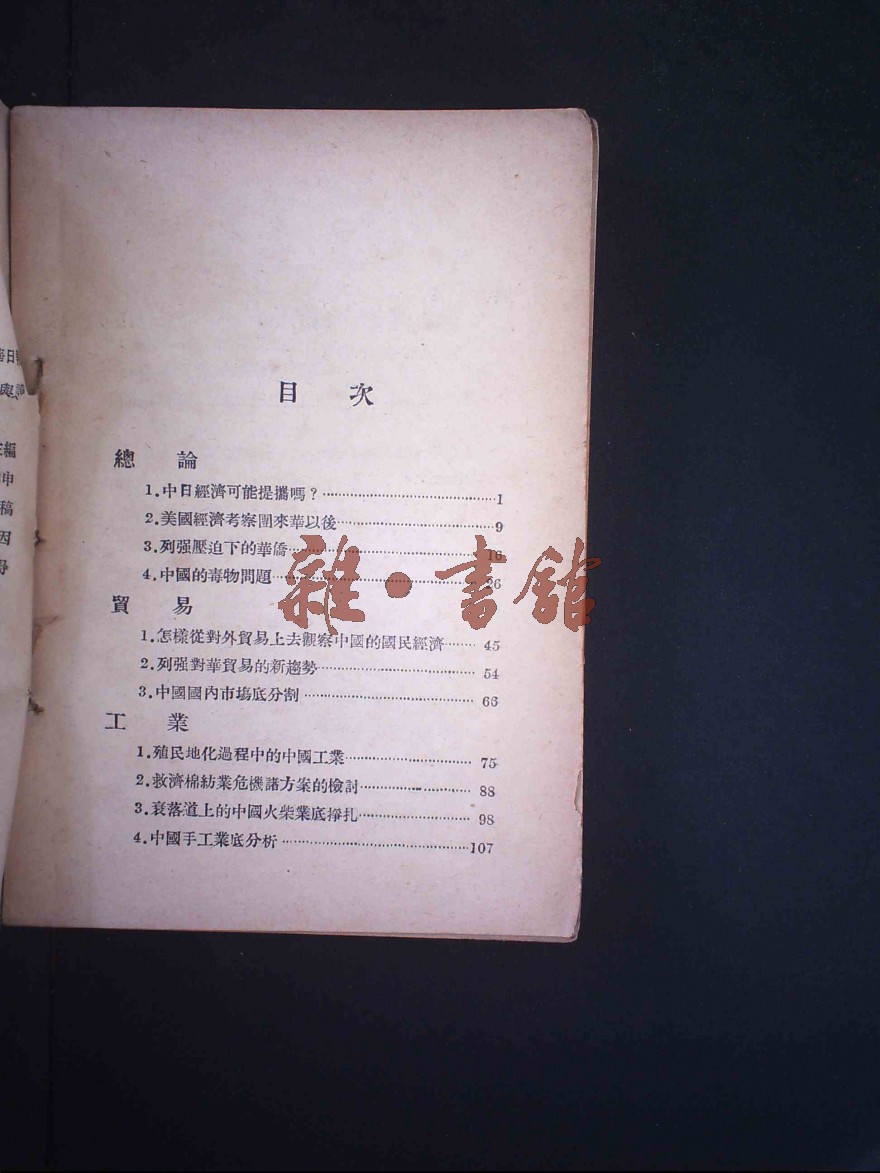 目 次
總 論
1.中日經濟可能提攜嗎？……1
2.美國經濟考察團來華以後……9
3.列强壓迫下的華僑……16
4.中國的毒物問題……26
貿 易
1.怎樣從對外貿易上去觀察中國的國民經濟……45
2.列强對華貿易的新趨勢……54
3.中國國內市塲底分割……66
工 業
1.殖民地化過程中的中國工業……75
2.救濟棉紡業危機諸方案的檢討……88
3.衰落道上的中國火柴業底掙扎……98
4.中國手工業底分析……107
雜·書館